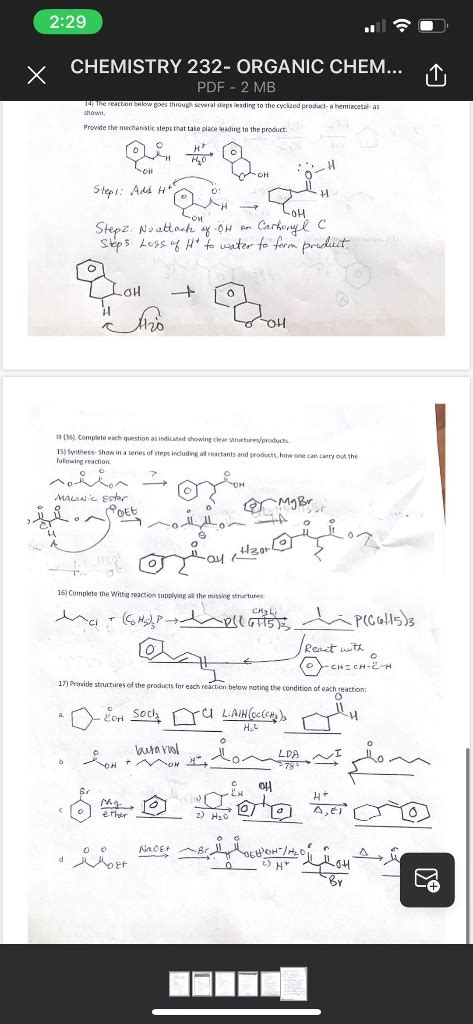 2:29
CHEMISTRY 232- ORGANIC CHEM...
PDF - 2 MB
14) The reaction below goes through several steps leading to the cyclized product- a hemiacetal- as
shown.
Provide the mechanistic steps that take place leading to the product.
O
H+
H
H2O
OH
OH
Step1: Add H+
H
OH
Step2: No attack of -OH on Carbonyl C
Step3 Loss of H+ to water to form product.
OH
+
H
H2O
OH
III (36). Complete each question as indicated showing clear structures/products.
15) Synthesis- Show in a series of steps including all reactants and products, how one can carry out the
following reaction:
?
OH
MALONIC Ester
OEt
MgBr
OH
H3O+
16) Complete the Wittig reaction supplying all the missing structures:
Cl + (C6H5)3P
CH3Li
P(C6H5)3
P(C6H5)3
React with
-CH=CH-C-H
17) Provide structures of the products for each reaction below noting the condition of each reaction:
a.
COH
SOCl2
Cl
H
b
butanol
OH
+
OH
H+
LDA
-78°
I
c
Br
Mg
ether
2) H2O
OH
H+
d
OEt
NaOEt
Br
OEt
2) H+
OH
Br
Δ